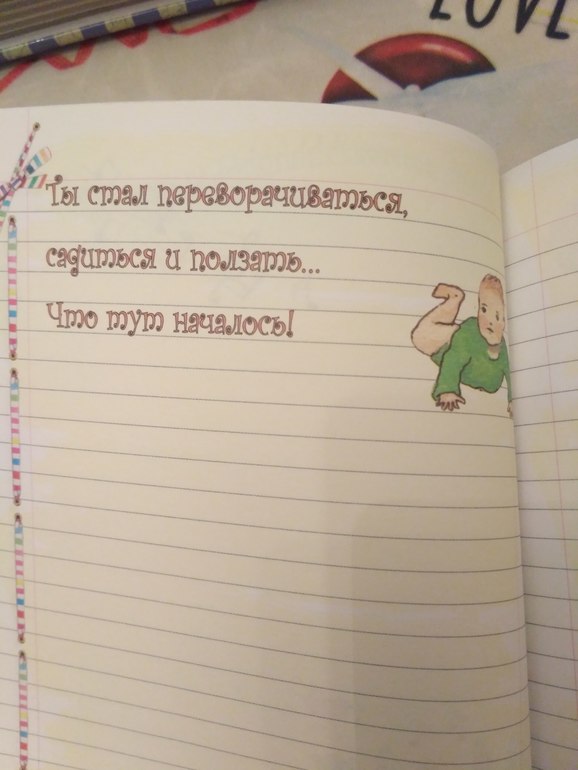 LOVE
Ты стал переворачиваться,
садиться и ползать...
Что тут началось!